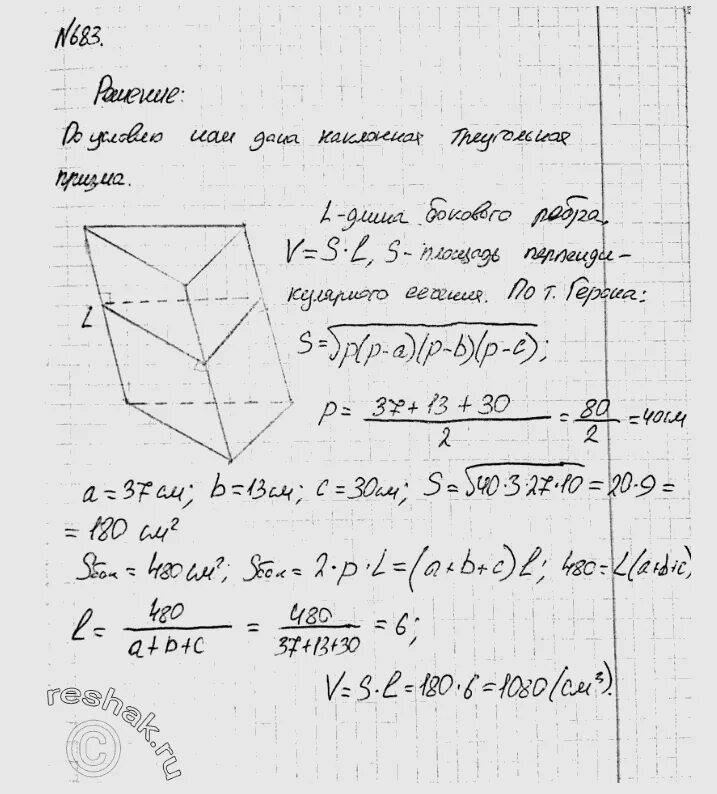 №683.
Решение:
По условию нам дана наклонная треугольная
призма.
L-длина бокового ребра.
V=S·l, S-площадь перпенди-
кулярного сечения. По т. Герона:
L
S=√p(p-a)(p-b)(p-c);
p= 37+13+30 / 2 = 80 / 2 =40см
a=37см; b=13см; c=30см; S=√40·3·27·10=20·9=
=180 см²
Sбок=480см²; Sбок=2·p·L=(a+b+c)l; 480=L(a+b+c)
l= 480 / a+b+c = 480 / 37+13+30 =6;
V=S·l=180·6=1080(см³).
reshak.ru
©